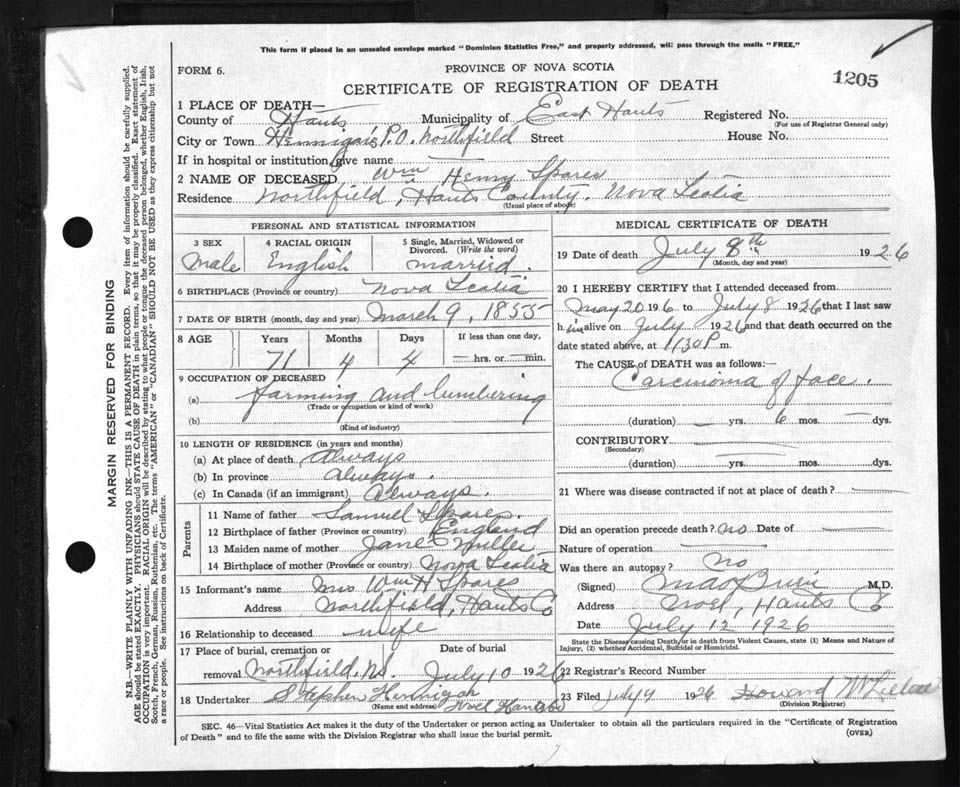 This form if placed in an unsealed envelope marked "Dominion Statistics Free," and properly addressed, will pass through the mails "FREE."
FORM 6.
PROVINCE OF NOVA SCOTIA
CERTIFICATE OF REGISTRATION OF DEATH
1205
1 PLACE OF DEATH—
County of Hants Municipality of East Hants Registered No.
(For use of Registrar General only)
City or Town Hennigar's P.O. Northfield Street House No.
If in hospital or institution, give name —
2 NAME OF DECEASED Wm Henry Spares
Residence Northfield, Hants County, Nova Scotia
(Usual place of abode)
PERSONAL AND STATISTICAL INFORMATION
3 SEX 4 RACIAL ORIGIN 5 Single, Married, Widowed or Divorced. (Write the word)
Male English married.
6 BIRTHPLACE (Province or country) Nova Scotia
7 DATE OF BIRTH (month, day and year) March 9, 1855
8 AGE Years Months Days If less than one day,
71 4 4 — hrs. or — min.
9 OCCUPATION OF DECEASED
(a) farming and lumbering
(Trade or occupation or kind of work)
(b)
(Kind of industry)
10 LENGTH OF RESIDENCE (in years and months)
(a) At place of death Always
(b) In province Always.
(c) In Canada (if an immigrant) Always.
Parents
11 Name of father Samuel Spares
12 Birthplace of father (Province or country) England
13 Maiden name of mother Jane Miller
14 Birthplace of mother (Province or country) Nova Scotia
15 Informant's name Mrs Wm H Spares
Address Northfield, Hants Co
16 Relationship to deceased wife
17 Place of burial, cremation or removal Date of burial
Northfield, N.S. July 10 1926
18 Undertaker Stephen Hennigar
(Name and address) Noel
MEDICAL CERTIFICATE OF DEATH
19 Date of death July 8th 1926
(Month, day and year)
20 I HEREBY CERTIFY that I attended deceased from
May 20 1926 to July 8 1926 that I last saw
him alive on July 1926 and that death occurred on the
date stated above, at 1130 P m.
The CAUSE of DEATH was as follows:—
Carcinoma of face.
(duration) — yrs. 6 mos. — dys.
CONTRIBUTORY
(Secondary)
(duration) yrs. mos. dys.
21 Where was disease contracted if not at place of death?
Did an operation precede death? no Date of
Nature of operation
Was there an autopsy? no
(Signed) M.D.
Address Noel, Hants Co
Date July 12 1926
State the Disease causing Death, or in death from Violent Causes, state (1) Means and Nature of Injury, (2) whether Accidental, Suicidal or Homicidal.
22 Registrar's Record Number
23 Filed July 9 1926 Howard
(Division Registrar)
SEC. 46—Vital Statistics Act makes it the duty of the Undertaker or person acting as Undertaker to obtain all the particulars required in the "Certificate of Registration
of Death" and to file the same with the Division Registrar who shall issue the burial permit.
(OVER)
MARGIN RESERVED FOR BINDING
N.B.—WRITE PLAINLY WITH UNFADING INK—THIS IS A PERMANENT RECORD. Every item of information should be carefully supplied.
AGE should be stated EXACTLY. PHYSICIANS should STATE CAUSE OF DEATH in plain terms, so that it may be properly classified. Exact statement of
OCCUPATION is very important. RACIAL ORIGIN will be described by stating to what people or tongue the deceased person belonged, whether English, Irish,
Scotch, French, German, Russian, Ruthenian, etc. The terms "AMERICAN" or "CANADIAN" SHOULD NOT BE USED as they express citizenship but not
a race or people. See instructions on back of Certificate.